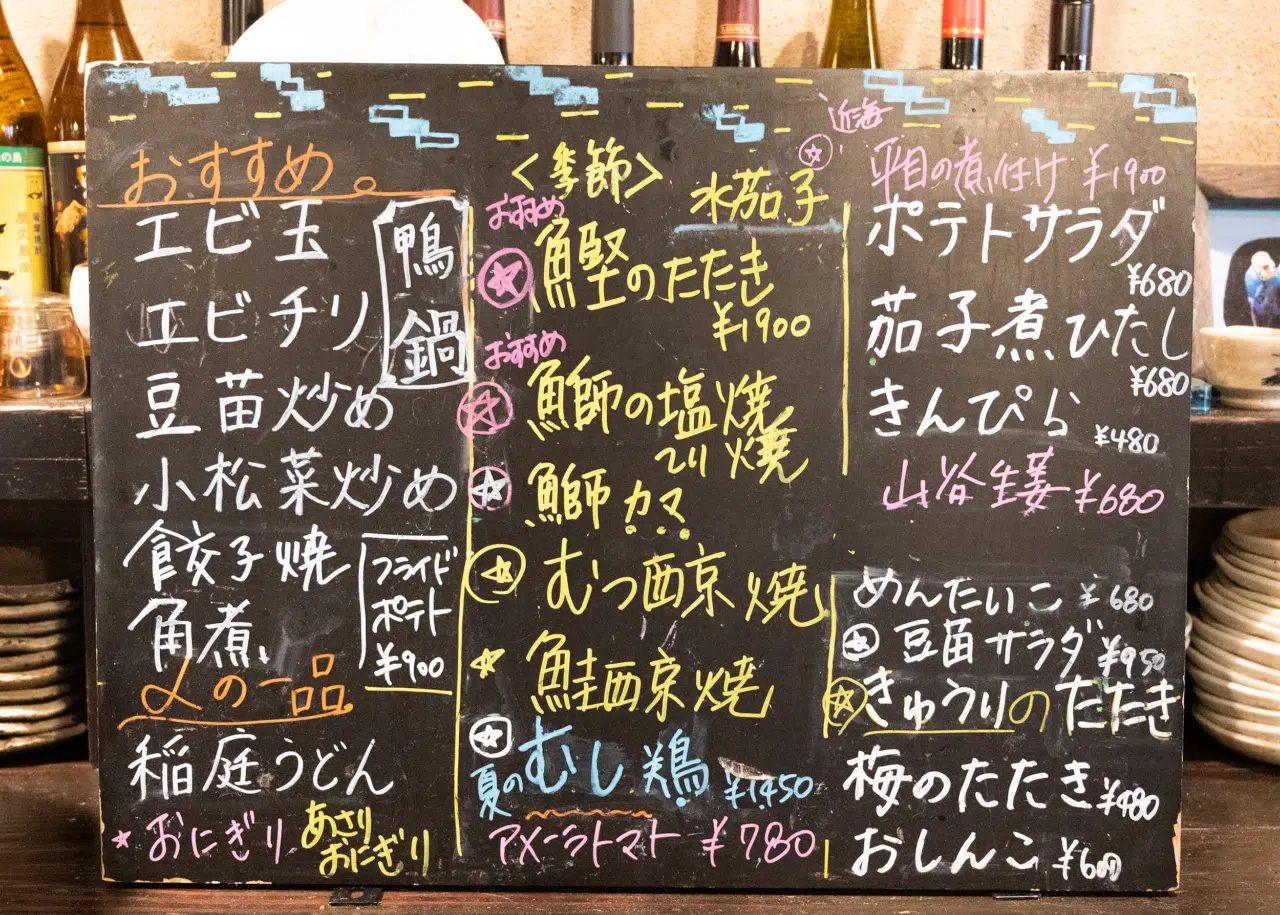 おすすめ
エビ玉
エビチリ
鴨鍋
豆苗炒め
小松菜炒め
餃子焼
角煮
フライド
ポテト
¥900
〆の一品
稲庭うどん
おにぎり
あさり
おにぎり
<季節>
水茄子
おすすめ
鰹のたたき
¥1900
おすすめ
鰤の塩焼
てり焼
鰤カマ
むつ西京焼
鮭西京焼
夏のむし鶏 ¥1,450
アメーラトマト ¥780
近海
平目の煮付け ¥1900
ポテトサラダ
¥680
茄子煮ひたし
¥680
きんぴら ¥480
谷生姜 ¥680
めんたいこ ¥680
豆苗サラダ ¥950
きゅうりのたたき
梅のたたき ¥480
おしんこ ¥600